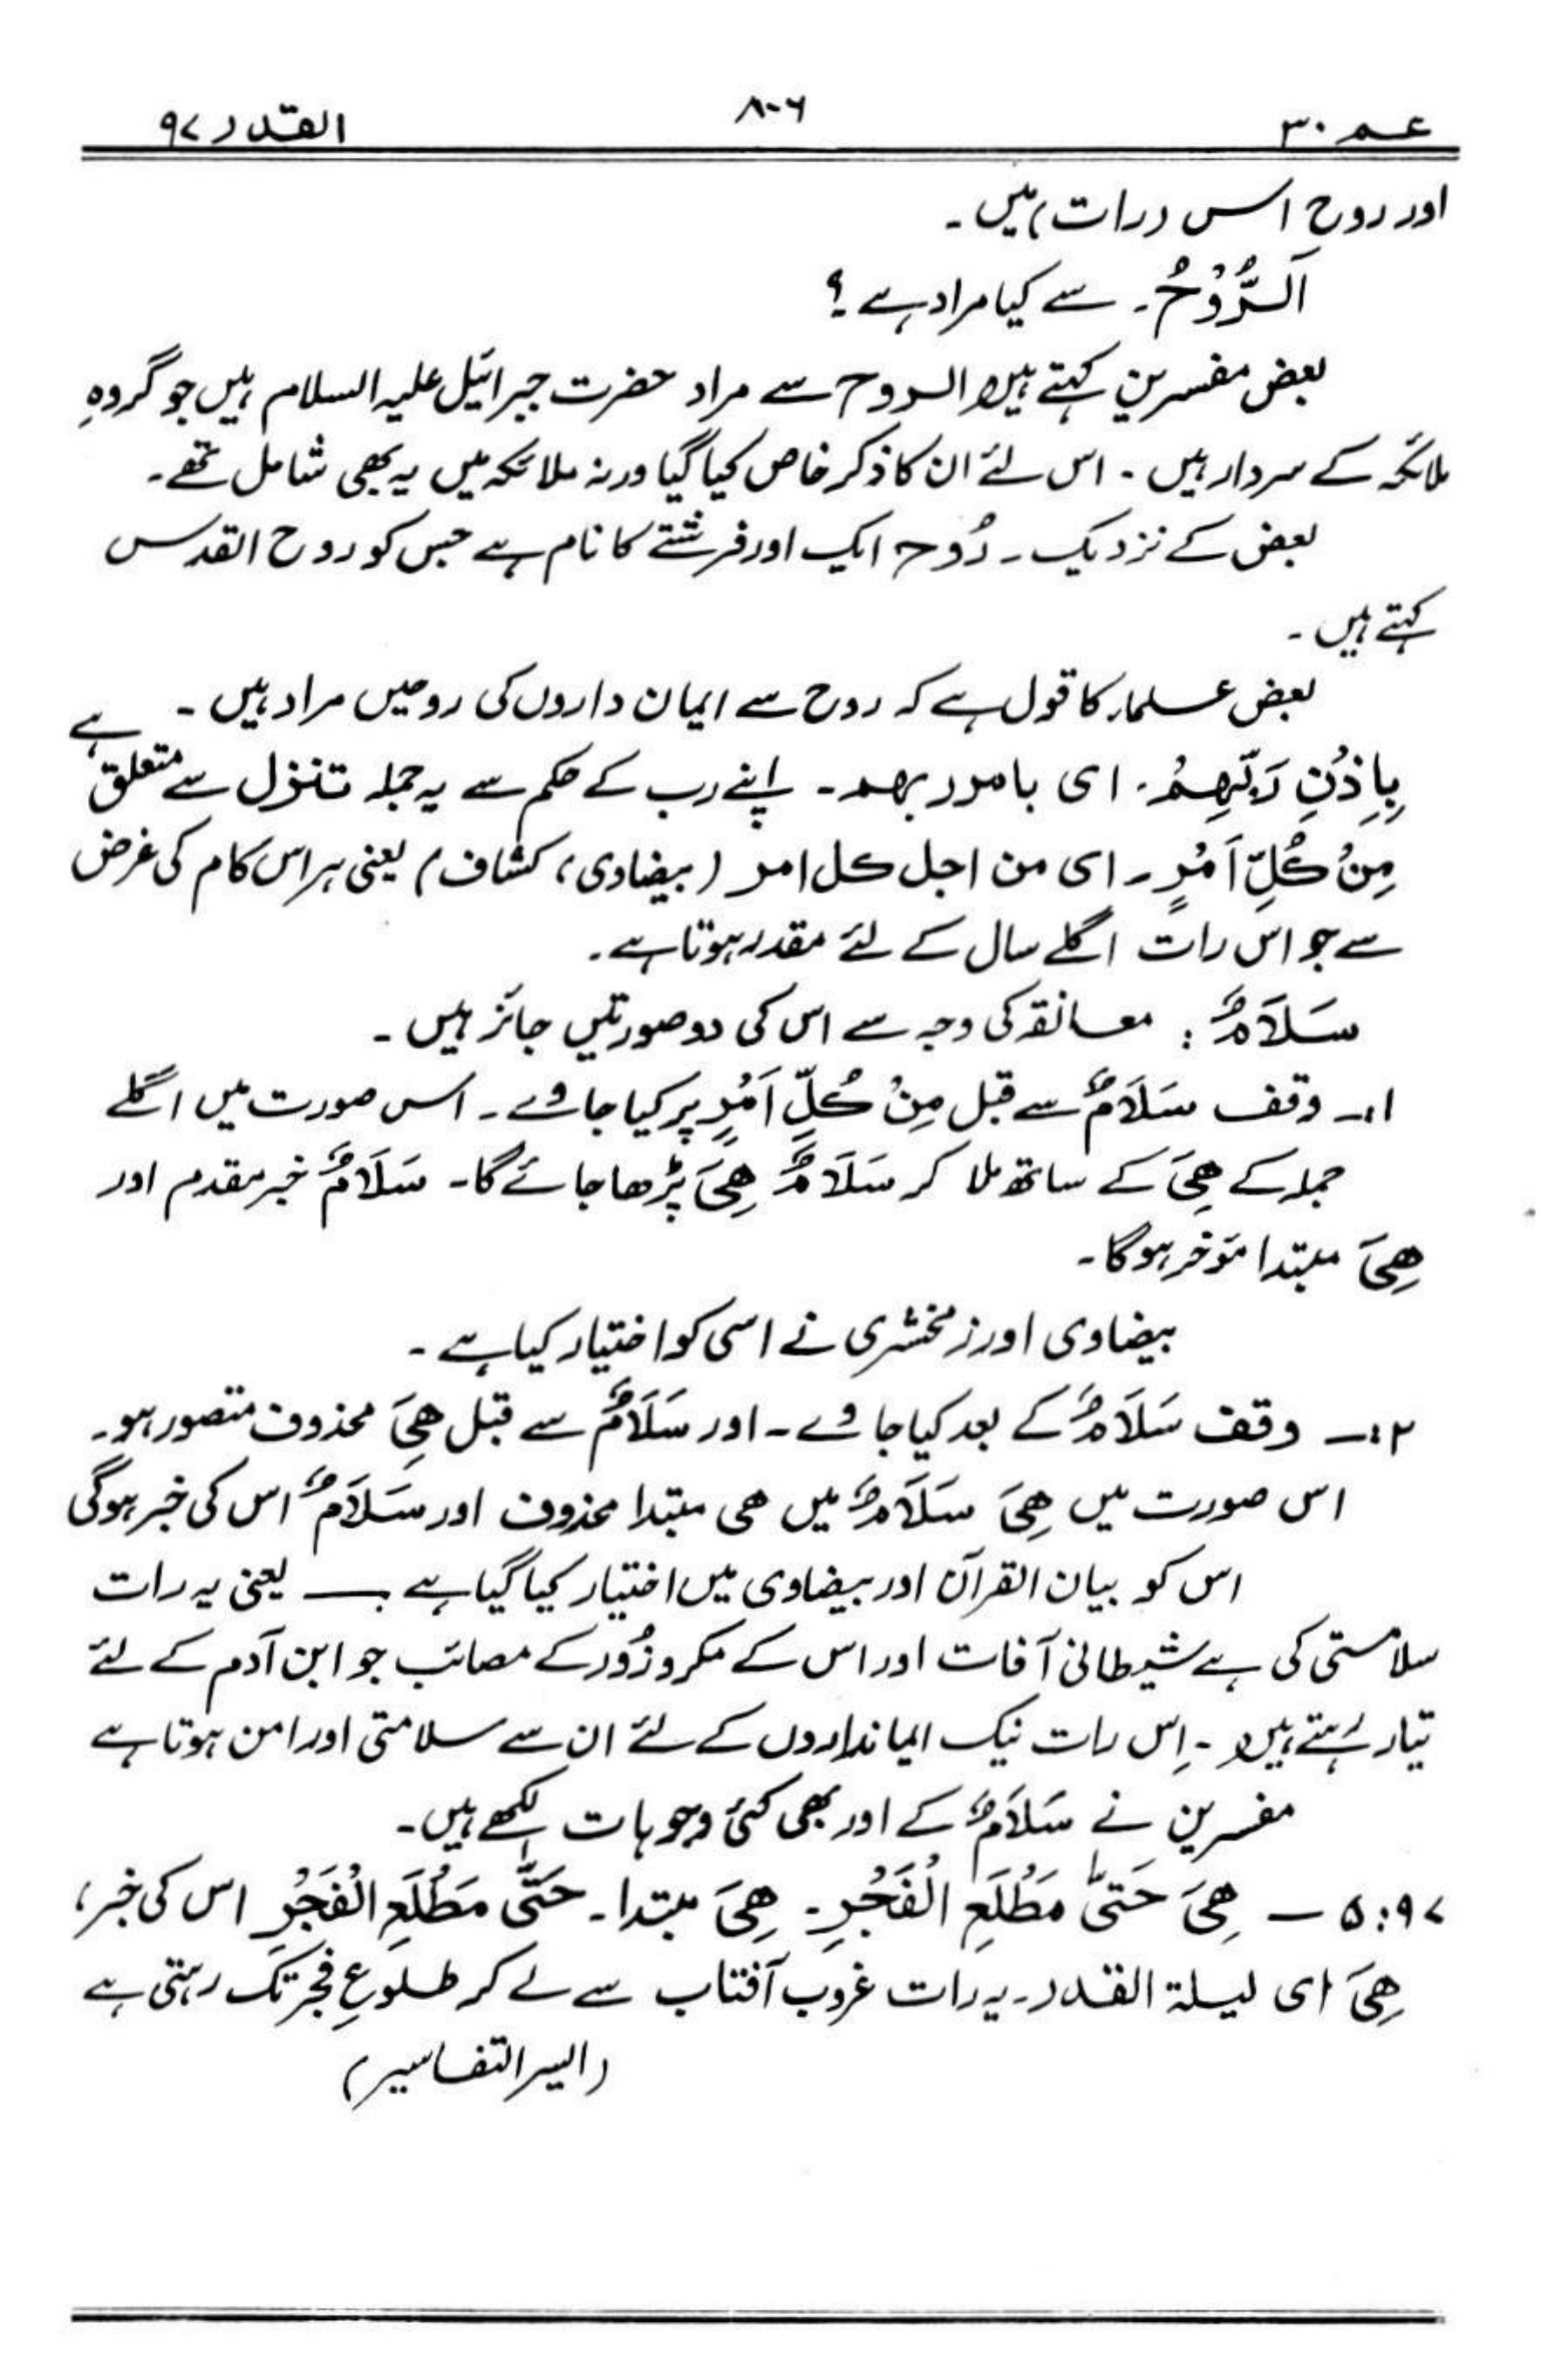 عم ۳۰
۸۰۶
القدر ۹۷
اور روح اس (رات) میں۔
اَلرُّوْحُ۔ سے کیا مراد ہے ؟
بعض مفسرین کہتے ہیں الروح سے مراد حضرت جبرائیل علیہ السلام ہیں جو گروہِ
ملائکہ کے سردار ہیں۔ اس لئے ان کا ذکر خاص کیا گیا ورنہ ملائکہ میں یہ بھی شامل تھے۔
بعض کے نزدیک۔ رُوح ایک اور فرشتے کا نام ہے جس کو روح القدس
کہتے ہیں۔
بعض علماء کا قول ہے کہ روح سے ایمان داروں کی روحیں مراد ہیں۔
بِاِذْنِ رَبِّهِمْ۔ ای بامر ربهم۔ اپنے رب کے حکم سے یہ جملہ تنزل سے متعلق ہے
مِنْ كُلِّ اَمْرٍ۔ ای من اجل کل امر (بیضاوی، کشاف) یعنی ہر اس کام کی غرض
سے جو اس رات اگلے سال کے لئے مقدر ہوتا ہے۔
سَلَامٌ : معانقہ کی وجہ سے اس کی دو صورتیں جائز ہیں۔
۱:۔ وقف سَلَامٌ سے قبل مِنْ كُلِّ اَمْرٍ پر کیا جاوے۔ اس صورت میں اگلے
جملہ کے هِیَ کے ساتھ ملا کر سَلَامٌ هِیَ پڑھا جائے گا۔ سَلَامٌ خبر مقدم اور
هِیَ مبتدا مؤخر ہوگا۔
بیضاوی اور زمخشری نے اسی کو اختیار کیا ہے۔
۲:۔ وقف سَلَامٌ کے بعد کیا جاوے۔ اور سَلَامٌ سے قبل هِیَ محذوف متصور ہو۔
اس صورت میں هِیَ سَلَامٌ میں هی مبتدا محذوف اور سَلَامٌ اس کی خبر ہوگی
اس کو بیان القرآن اور بیضاوی میں اختیار کیا گیا ہے ــ یعنی یہ رات
سلامتی کی ہے شیطانی آفات اور اس کے مکر و زُور کے مصائب جو ابن آدم کے لئے
تیار رہتے ہیں۔ اِس رات نیک ایمانداروں کے لئے ان سے سلامتی اور امن ہوتا ہے
مفسرین نے سَلَامٌ کے اور بھی کئی وجوہات لکھے ہیں۔
۹۷:۵ ــ هِیَ حَتّٰى مَطْلَعِ الْفَجْرِ۔ هِیَ مبتدا۔ حَتّٰى مَطْلَعِ الْفَجْرِ اس کی خبر،
هِیَ ای لیلة القدر۔ یہ رات غروب آفتاب سے لے کر طلوعِ فجر تک رہتی ہے
(الیسر التفاسیر)